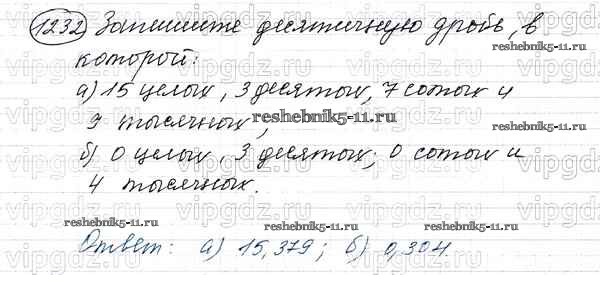 1232 Запишите десятичную дробь, в
которой:
а) 15 целых, 3 десятых, 7 сотых и
9 тысячных,
б) 0 целых, 3 десятых, 0 сотых и
4 тысячных.
Ответ: а) 15,379; б) 0,304.
reshebnik5-11.ru
reshebnik5-11.ru
reshebnik5-11.ru
reshebnik5-11.ru
reshebnik5-11.ru
vipgdz.ru